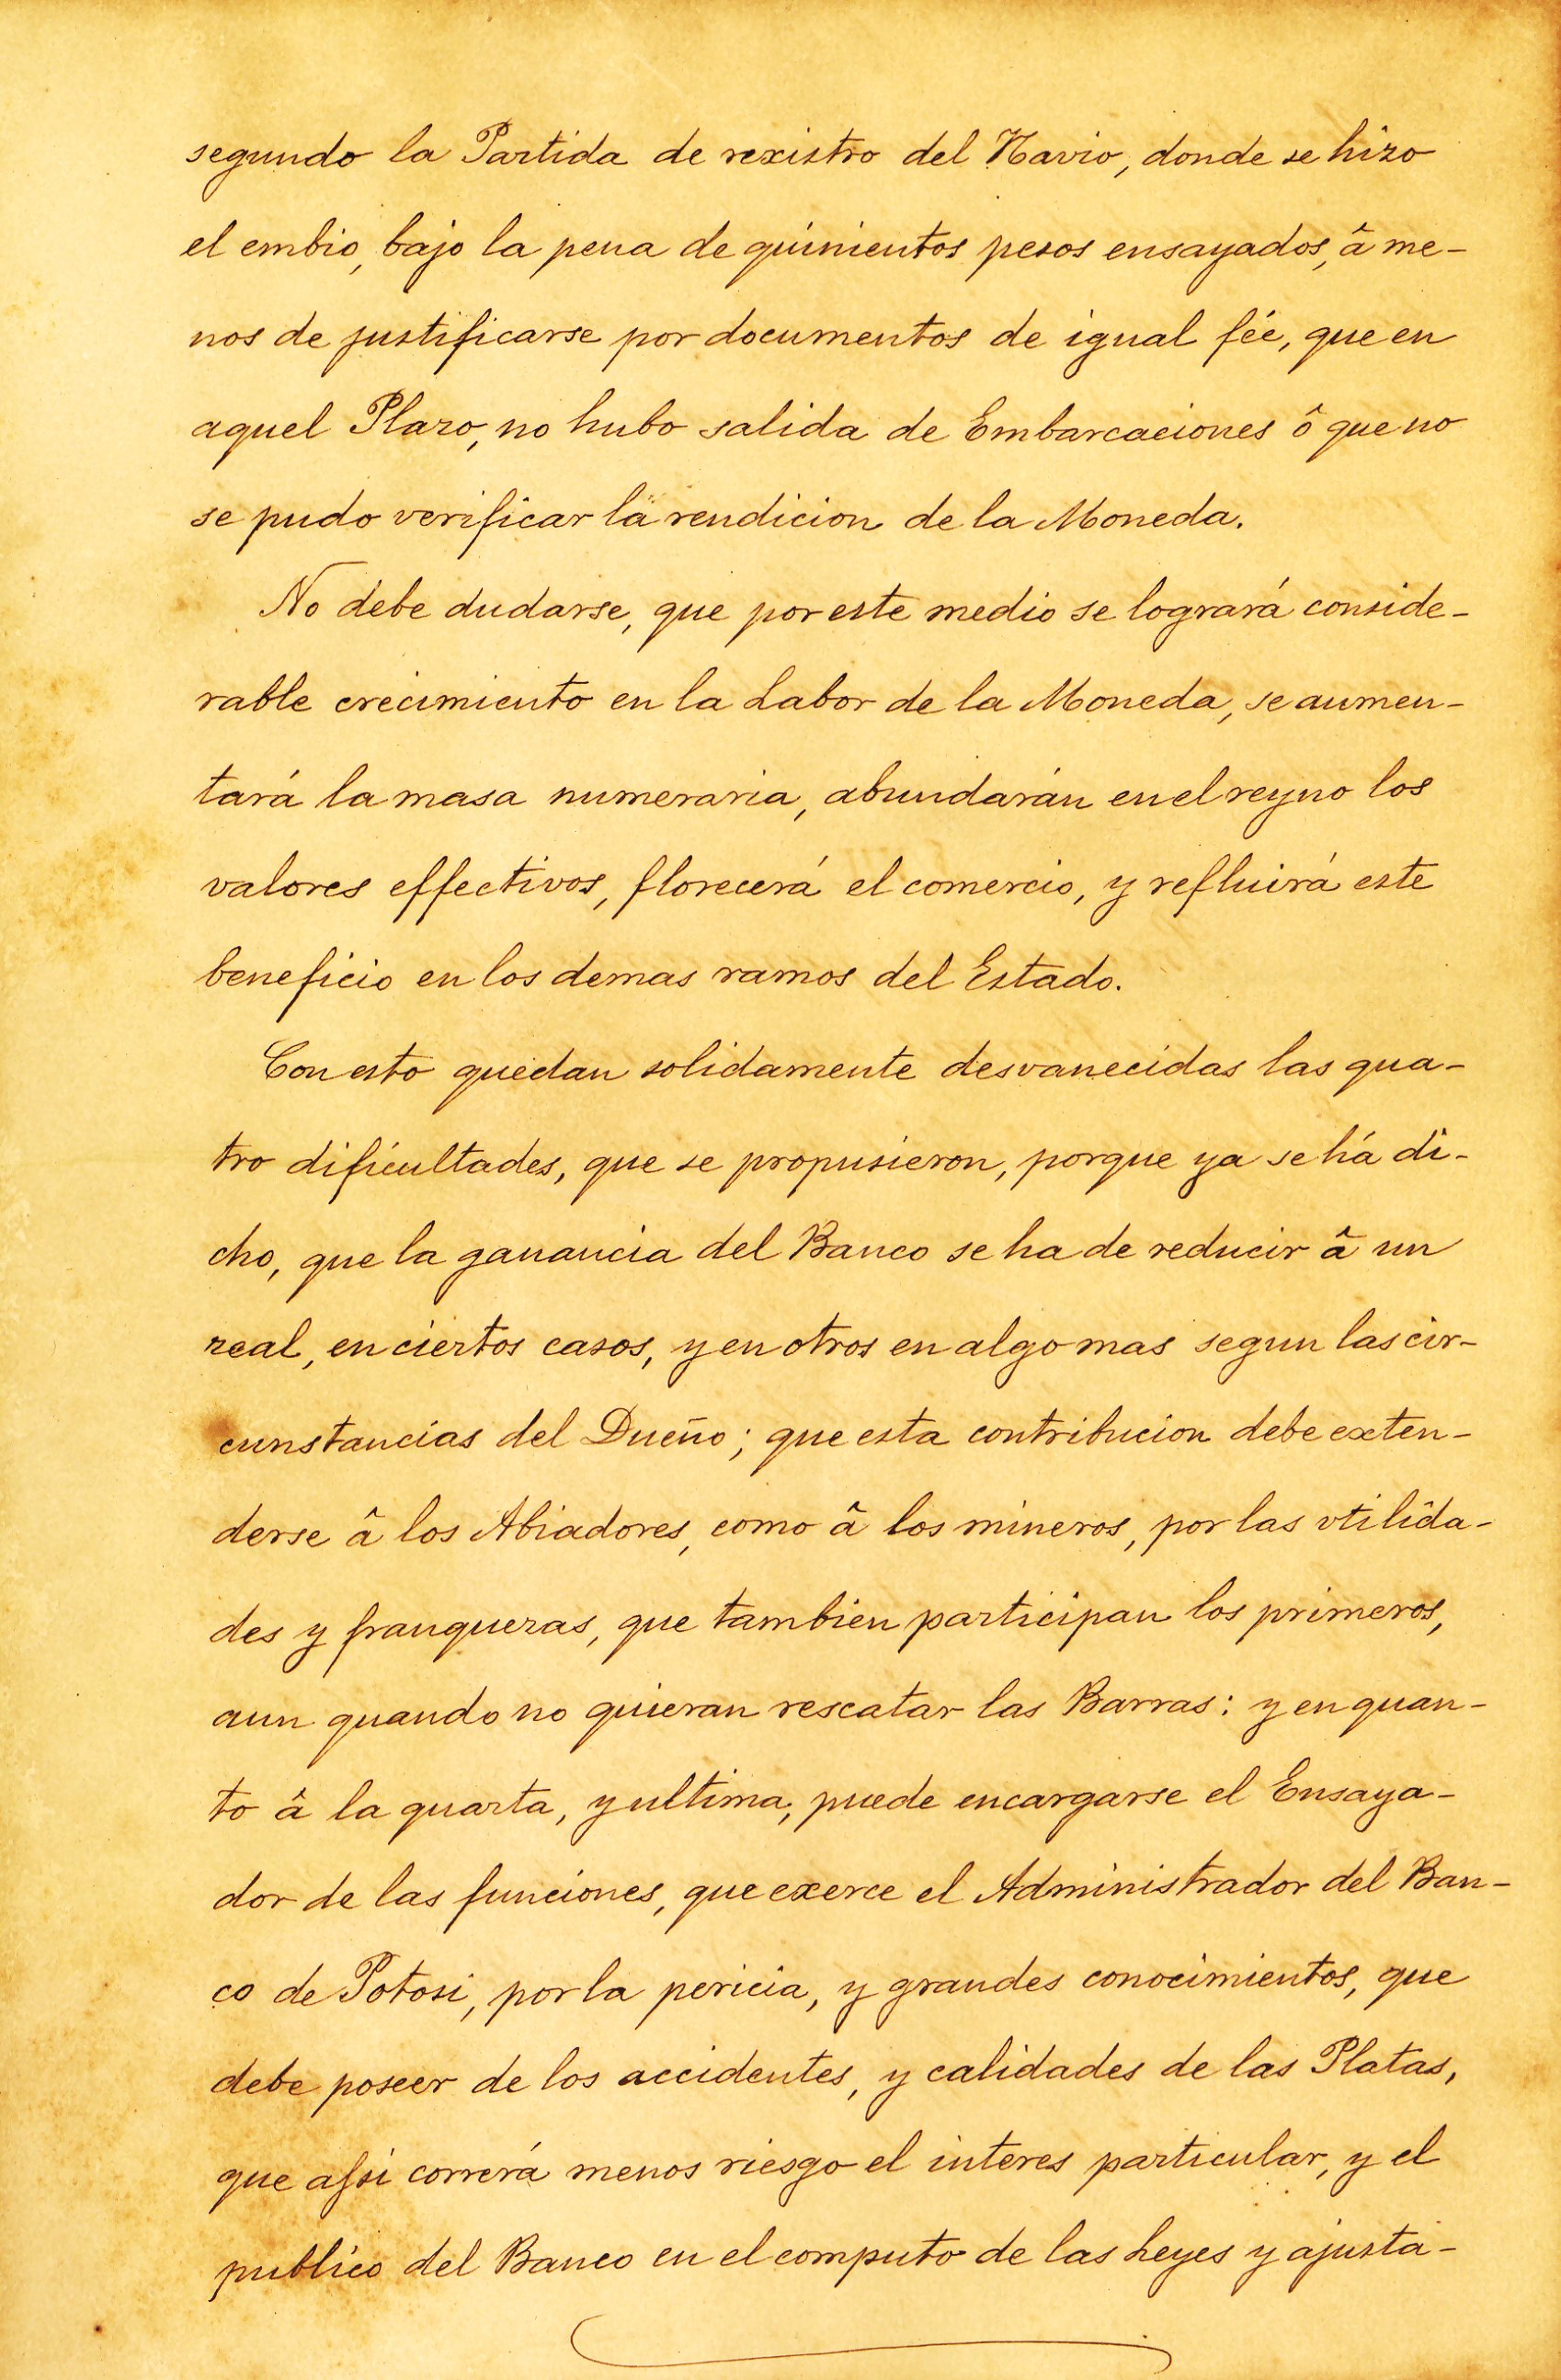 segundo la Partida de rexistro del Navio, donde se hizo
el embio, bajo la pena de quinientos pesos ensayados, â me-
nos de justificarse por documentos de igual fée, que en
aquel Plazo, no hubo salida de Embarcaciones ô que no
se pudo verificar la rendicion de la Moneda.
No debe dudarse, que por este medio se logrará conside-
rable crecimiento en la Labor de la Moneda, se aumen-
tará la masa numeraria, abundarán en el reyno los
valores effectivos, florecerá el comercio, y refluirá este
beneficio en los demas ramos del Estado.
Con esto quedan solidamente desvanecidas las qua-
tro dificultades, que se propusieron, porque ya se há di-
cho, que la ganancia del Banco se ha de reducir â un
real, en ciertos casos, y en otros en algo mas segun las cir-
cunstancias del Dueño; que esta contribucion debe exten-
derse â los Abiadores, como â los mineros, por las vtilida-
des y franquezas, que tambien participan los primeros,
aun quando no quieran rescatar las Barras: y en quan-
to â la quarta, y ultima, puede encargarse el Ensaya-
dor de las funciones, que exerce el Administrador del Ban-
co de Potosi, por la pericia, y grandes conocimientos, que
debe poseer de los accidentes, y calidades de las Platas,
que assi correrá menos riesgo el interes particular, y el
publico del Banco en el computo de las Leyes y ajusta-